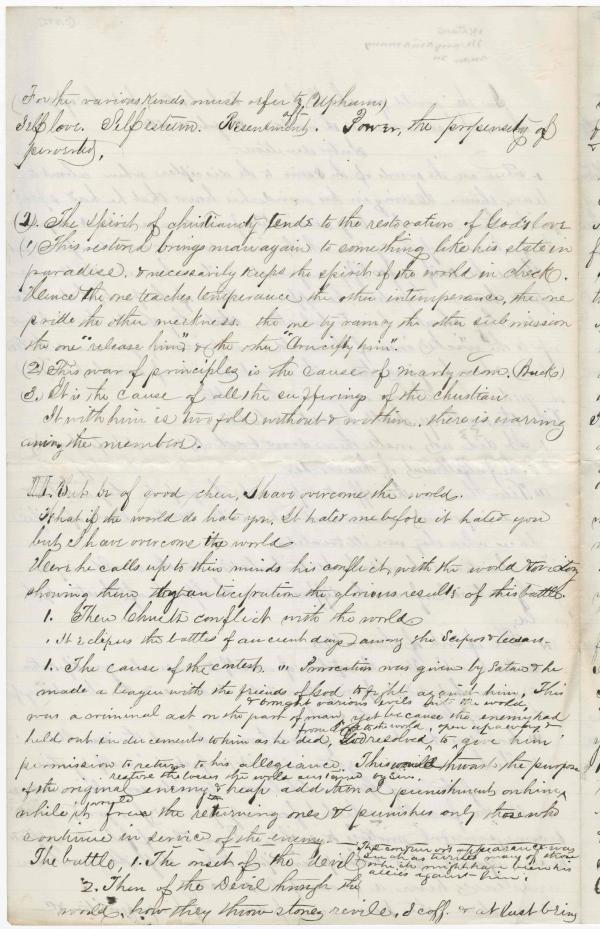 (For the various kinds must refer to (Upham)
Self love. Self esteem. Resentment. Power, the propensity of
perverted.
(2). The spirit of christianity tends to the restoration of God's love
(1) This restored brings man again to something like his state in
paradise. & necessarily keeps the spirit of the world in check.
Hence the one teaches temperance the other intemperance, the one
pride the other meekness. the one tyranny the other submission
the one "release him" & the other "Crucify him".
(2) This war of principles is the cause of martyrdom. (Buck)
3. It is the cause of all the sufferings of the christian
It with him is two fold without & within. there is warring
among the members.
III. But be of good cheer, I have overcome the world.
What if the world do hate you. It hated me before it hated you
but I have overcome the world
Here he calls up to their minds his conflict with the world &
showing them anticipation the glorious results of this battle.
1. Then Christ's conflict with the world
It eclipses the battles of ancient days among the
1. The cause of the contest. Provocation was given by Satan & he
made a league with the friends of God to fight against him. This
& brought various evils into the world,
was a criminal act on the part of man, yet because the enemy had
held out inducements to him as he did, God resolved to give him
permission to return to his allegiance. This would thwart the purpose
restore the losses the world sustained by sin.
of the original enemy & heap additional punishment on him
while it frees the returning ones & punishes only those who
continue in service of the enemy.
The battle, 1. The onset of the devil
The conqueror's appearance was
such as invited many of those
which might have been his
allies against him.
2. Then of the Devil through the
world, how they throw stones, revile, scoff. & at last bring